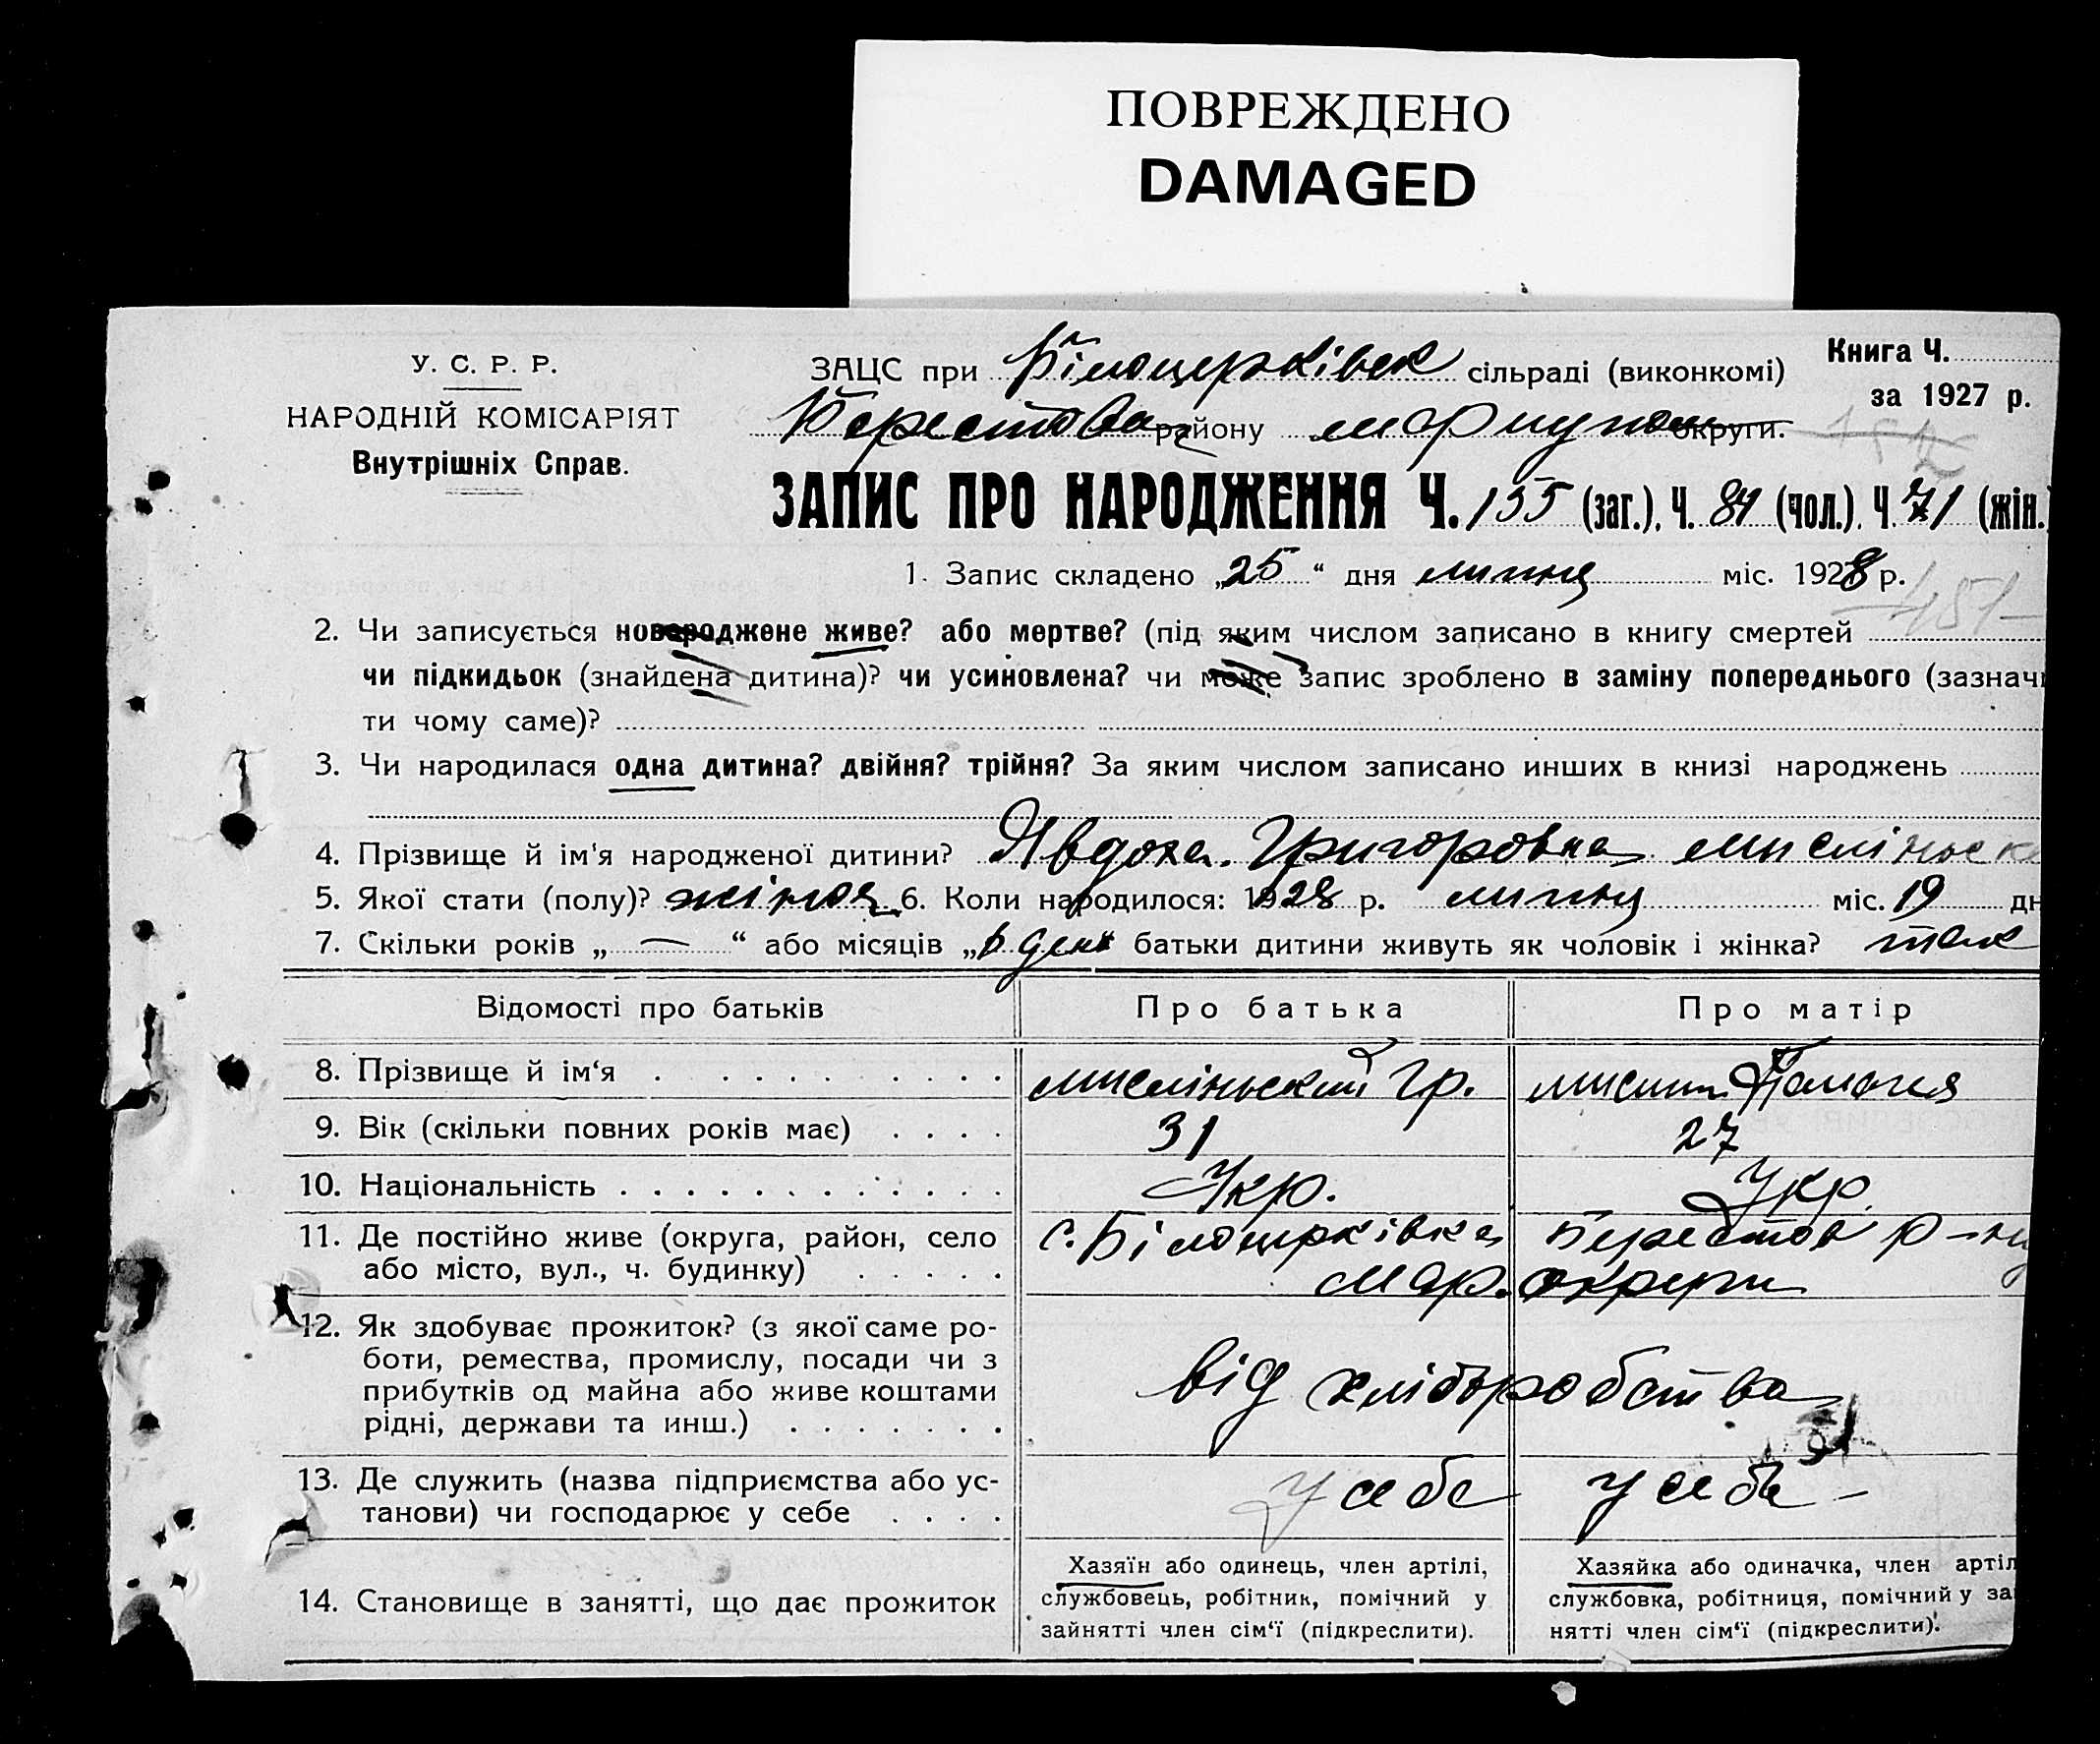 ПОВРЕЖДЕНО
DAMAGED
У. С. Р. Р.
НАРОДНІЙ КОМІСАРІЯТ
Внутрішніх Справ.
ЗАЦС при Білоцерківск сільраді (виконкомі)
Книга Ч.
за 1927 р.
Берестова району Маріупол округи.
ЗАПИС ПРО НАРОДЖЕННЯ Ч. 155 (заг.), Ч. 84 (чол.), Ч. 71 (жін.)
1. Запис складено „25“ дня липня міс. 1928 р.
2. Чи записується новороджене живе? або мертве? (під яким числом записано в книгу смертей
чи підкидьок (знайдена дитина)? чи усиновлена? чи може запис зроблено в заміну попереднього (зазначи
ти чому саме)?
3. Чи народилася одна дитина? двійня? трійня? За яким числом записано инших в книзі народжень
4. Прізвище й ім'я народженої дитини? Явдоха Григоровна Мисліньска
5. Якої стати (полу)? жіноч 6. Коли народилося: 1928 р. липня міс. 19 дн
7. Скільки років „—“ або місяців „ “ батьки дитини живуть як чоловік і жінка? так
Відомості про батьків Про батька Про матір
8. Прізвище й ім'я Мисліньский Гр. Мислин
9. Вік (скільки повних років має) 31 27
10. Національність Укр. Укр.
11. Де постійно живе (округа, район, село с. Білоцерківка Берестов р-ну
або місто, вул., ч. будинку) Мар. округи
12. Як здобуває прожиток? (з якої саме ро-
боти, ремества, промислу, посади чи з
прибутків од майна або живе коштами від хліборобства
рідні, держави та инш.)
13. Де служить (назва підприємства або ус- у себе у себе
танови) чи господарює у себе
14. Становище в занятті, що дає прожиток
Хазяїн або одинець, член артілі,
службовець, робітник, помічний у
зайнятті член сім'ї (підкреслити).
Хазяйка або одиначка, член артіл
службовка, робітниця, помічний у за
нятті член сім'ї (підкреслити).